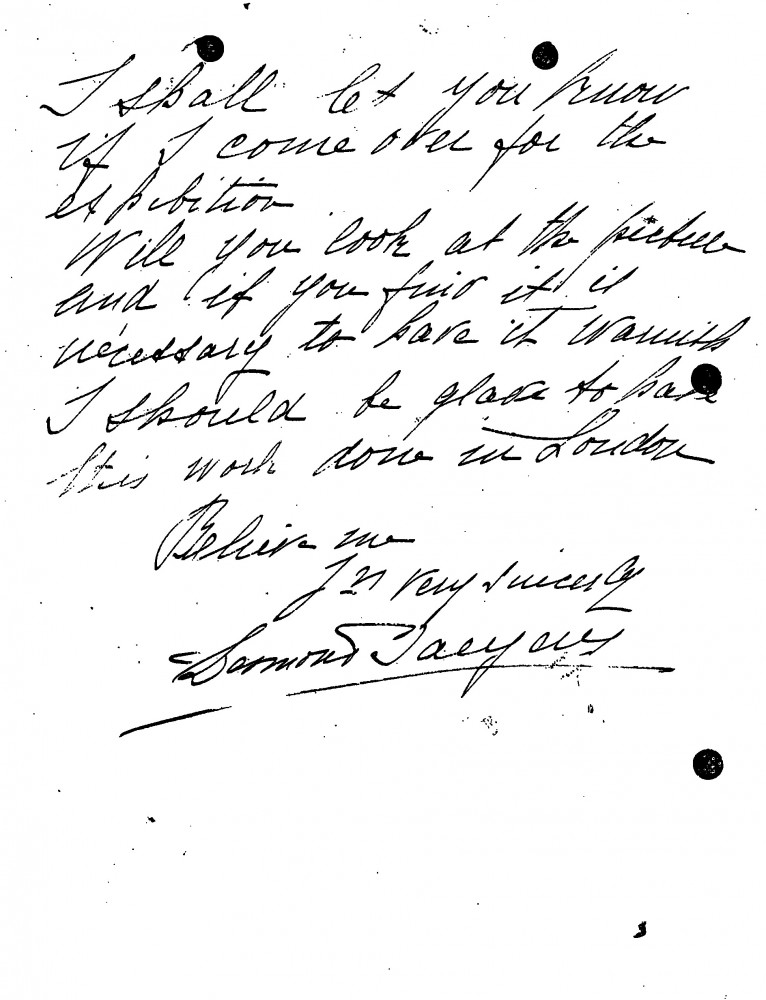 I shall let you know
if I come over for the
exhibition
Will you look at the picture
and if you find it is
necessary to have it warnish
I should be glade to have
this work done in London
Believe me
Yrs very sincerely